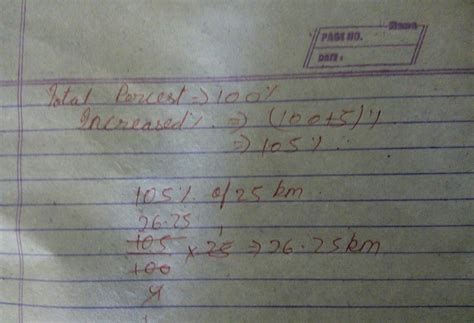 PAGE NO.
DATE:
Total Percest => 100%
Increased% => (100+5)%
=> 105%
105% of 25 km
26.25
105/100 × 25 => 26.25km
4